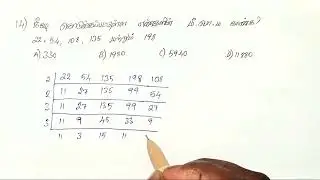 14) கீழே கொடுக்கப்பட்டுள்ள எண்களின் மீ.சி.ம காண்க?
22, 54, 108, 135 மற்றும் 198
A) 330 B) 1980 C) 5940 D) 11880
2 22 54 135 198 108
2 11 27 135 99 54
3 11 27 135 99 27
3 11 9 45 33 9
11 3 15 11